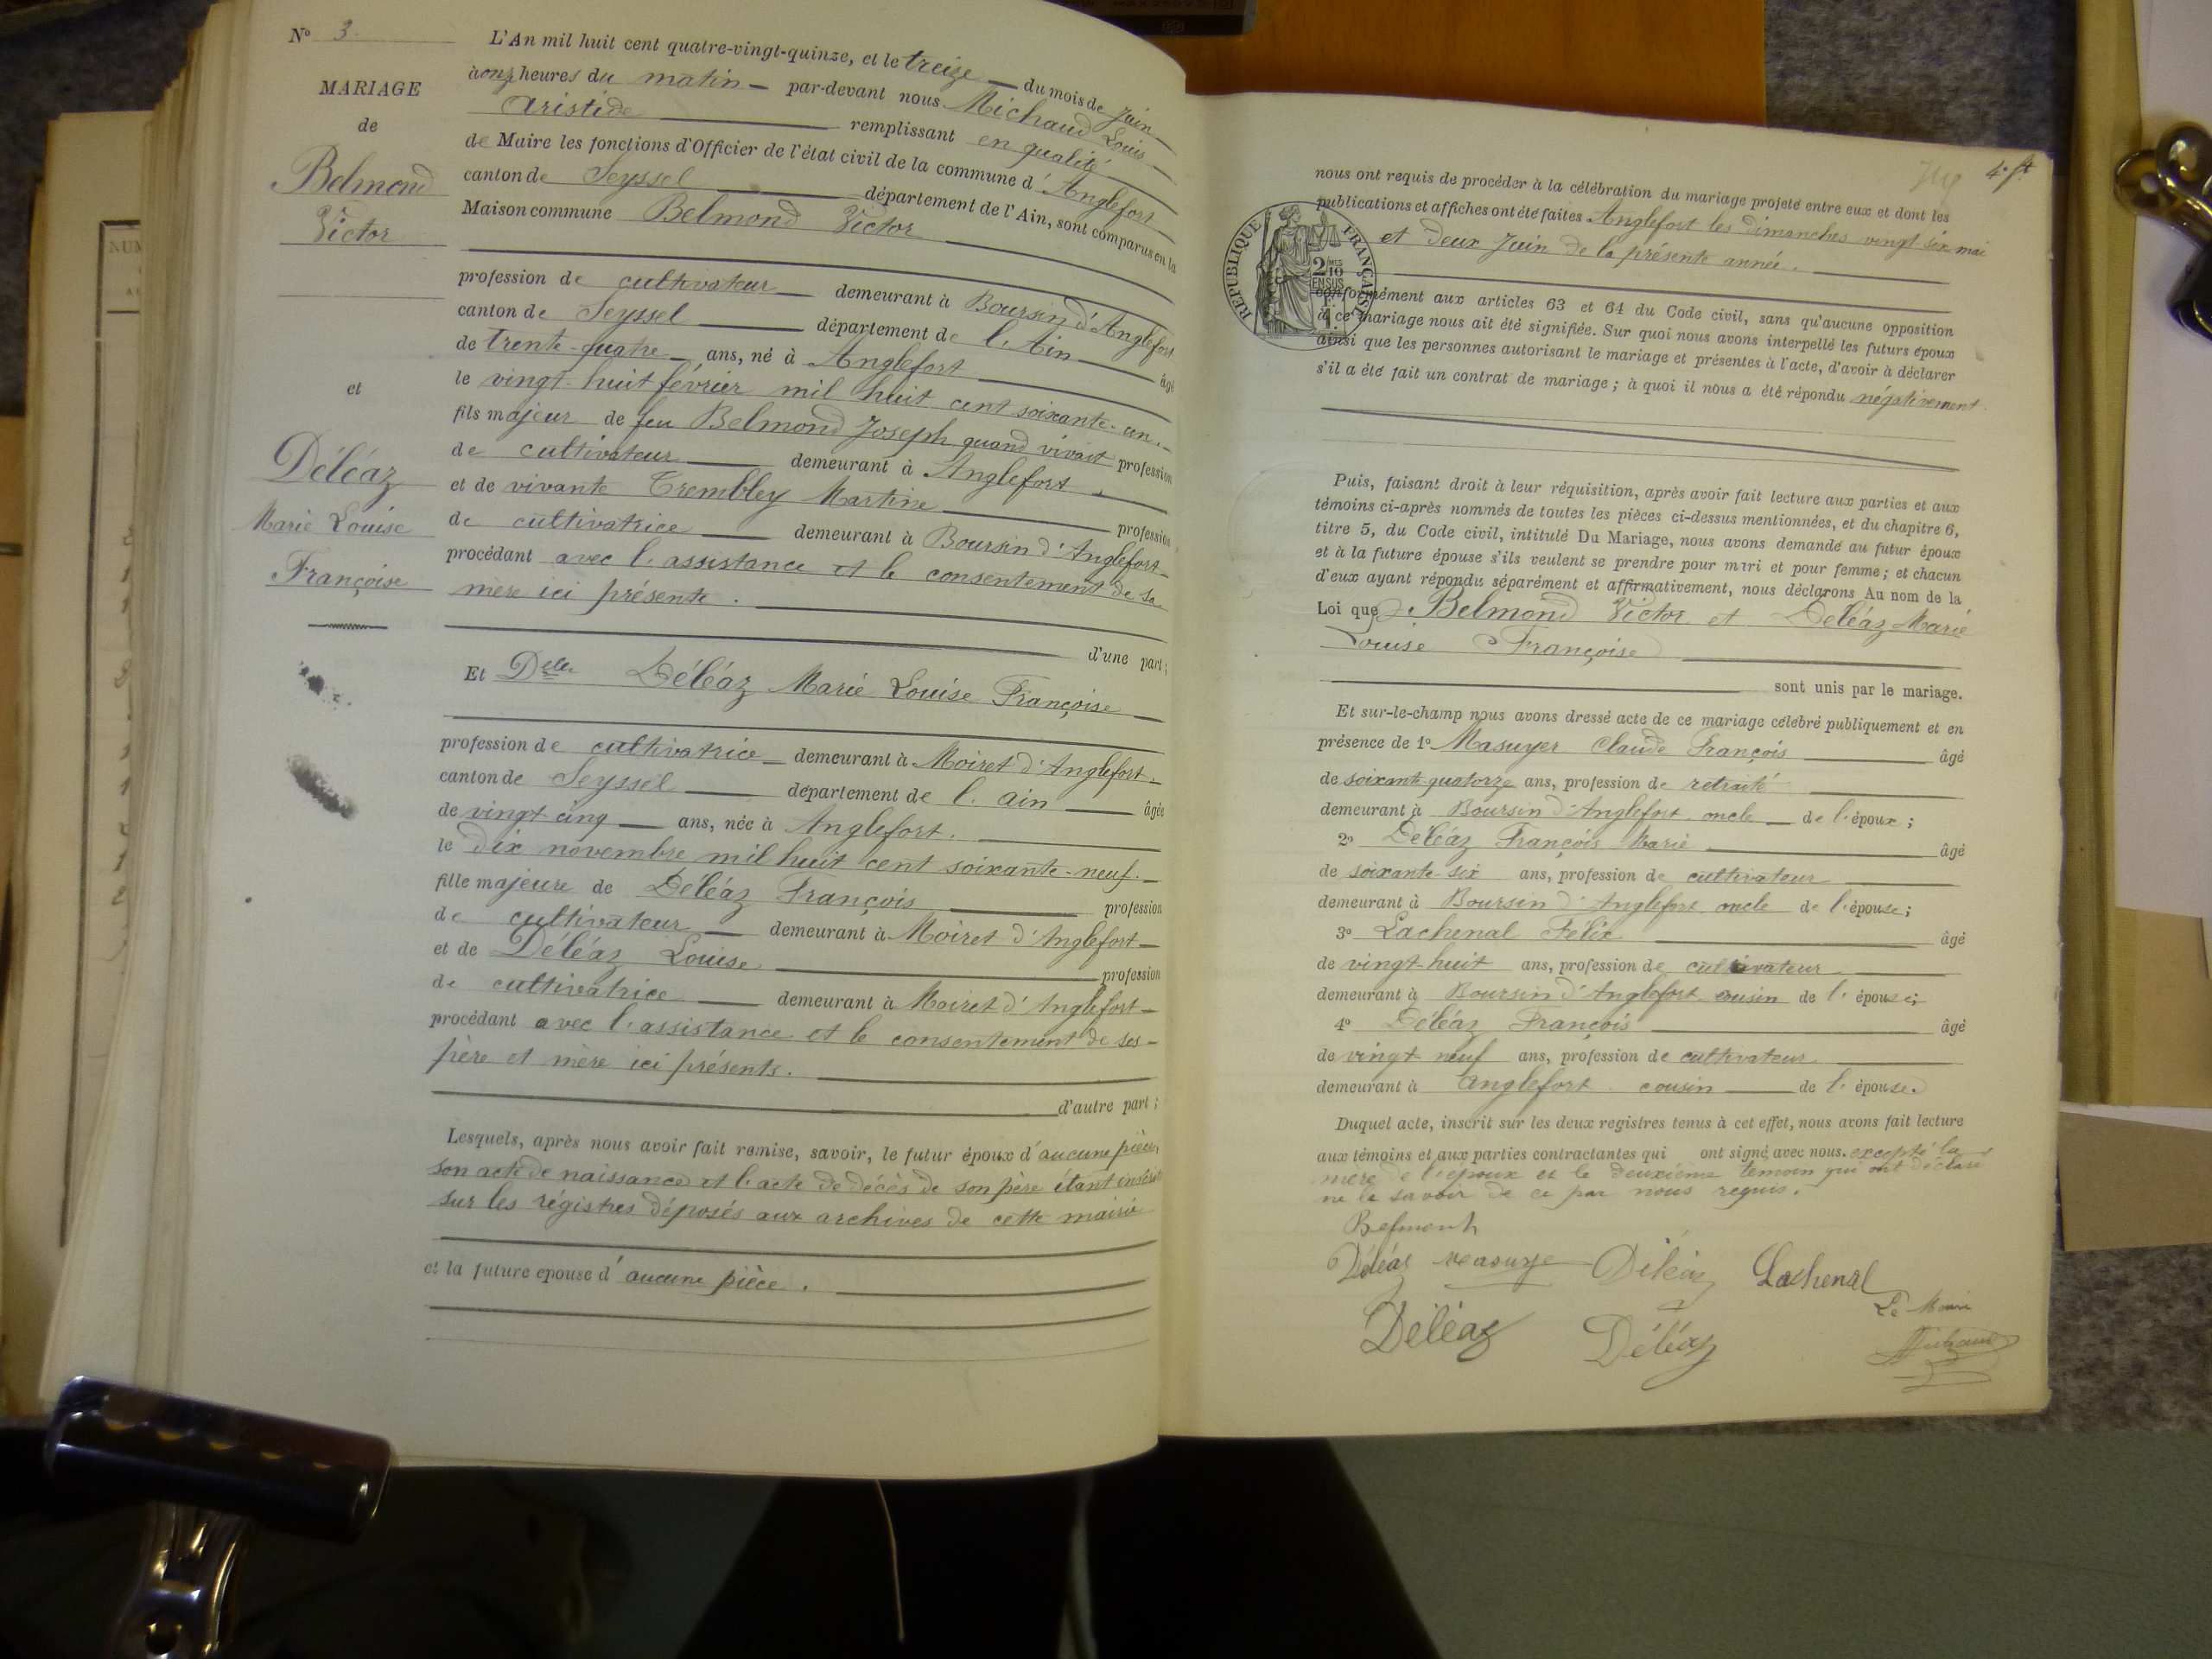 N° 3.
MARIAGE
de
Belmond
Victor
et
Déléaz
Marie Louise
Françoise
L'An mil huit cent quatre-vingt-quinze, et le treize du mois de Juin
à onz heures du matin par-devant nous Michaud Louis
Aristide remplissant en qualité
de Maire les fonctions d'Officier de l'état civil de la commune d'Anglefort
canton de Seyssel département de l'Ain, sont comparus en la
Maison commune Belmond Victor
profession de cultivateur demeurant à Boursin d'Anglefort
canton de Seyssel département de l'Ain âgé
de trente-quatre ans, né à Anglefort
le vingt-huit février mil huit cent soixante-un.
fils majeur de feu Belmond Joseph quand vivait profession
de cultivateur demeurant à Anglefort.
et de vivante Trembley Martine profession
de cultivatrice demeurant à Boursin d'Anglefort
procédant avec l'assistance et le consentement de sa
mère ici présente.
d'une part;
Et Delle Déléaz Marie Louise Françoise
profession de cultivatrice demeurant à Moiret d'Anglefort
canton de Seyssel département de l'ain âgée
de vingt-cinq ans, née à Anglefort.
le dix novembre mil huit cent soixante-neuf.
fille majeure de Déléaz François profession
de cultivateur demeurant à Moiret d'Anglefort
et de Déléaz Louise profession
de cultivatrice demeurant à Moiret d'Anglefort
procédant avec l'assistance et le consentement de ses
père et mère ici présents.
d'autre part;
Lesquels, après nous avoir fait remise, savoir, le futur époux d'aucune pièce,
son acte de naissance et l'acte de décès de son père étant inscrits
sur les régistres déposés aux archives de cette mairie
et la future epouse d'aucune pièce.
4e ft
nous ont requis de procéder à la célébration du mariage projeté entre eux et dont les
publications et affiches ont été faites Anglefort les dimanches vingt six mai
et deux Juin de la présente année.
REPUBLIQUE FRANÇAISE
2/10 EN SUS
conformément aux articles 63 et 64 du Code civil, sans qu'aucune opposition
à ce mariage nous ait été signifiée. Sur quoi nous avons interpellé les futurs époux
ainsi que les personnes autorisant le mariage et présentes à l'acte, d'avoir à déclarer
s'il a été fait un contrat de mariage; à quoi il nous a été répondu négativement.
Puis, faisant droit à leur réquisition, après avoir fait lecture aux parties et aux
témoins ci-après nommés de toutes les pièces ci-dessus mentionnées, et du chapitre 6,
titre 5, du Code civil, intitulé Du Mariage, nous avons demandé au futur époux
et à la future épouse s'ils veulent se prendre pour mari et pour femme; et chacun
d'eux ayant répondu séparément et affirmativement, nous déclarons Au nom de la
Loi que Belmond Victor et Déléaz Marie
Louise Françoise
sont unis par le mariage.
Et sur-le-champ nous avons dressé acte de ce mariage célébré publiquement et en
présence de 1° Masuyer Claude François âgé
de soixante-quatorze ans, profession de retraité
demeurant à Boursin d'Anglefort oncle de l'époux;
2° Déléaz François Marie âgé
de soixante-six ans, profession de cultivateur
demeurant à Boursin d'Anglefort oncle de l'épouse;
3° Lachenal Felix âgé
de vingt-huit ans, profession de cultivateur
demeurant à Boursin d'Anglefort cousin de l'épouse;
4° Déléaz François âgé
de vingt neuf ans, profession de cultivateur
demeurant à Anglefort cousin de l'épouse.
Duquel acte, inscrit sur les deux registres tenus à cet effet, nous avons fait lecture
aux témoins et aux parties contractantes qui ont signé avec nous. excepté la
mère de l'époux et le deuxième temoin qui ont déclaré
ne le savoir de ce par nous requis.
Belmont
Déléaz masuye Déléaz Lachenal
Le Maire
Déléaz Déléaz Michaud